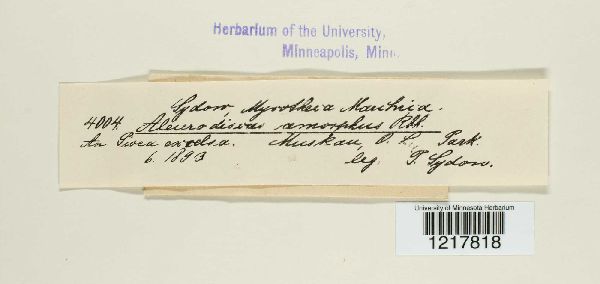 Herbarium of the University,
Minneapolis, Minn.
Sydow, Mycotheca Marchica.
4004. Aleurodiscus amorphus Rbh.
An Picea excelsa. Muskau, O. L., Park.
6. 1893 leg. P. Sydow.
University of Minnesota Herbarium
1217818